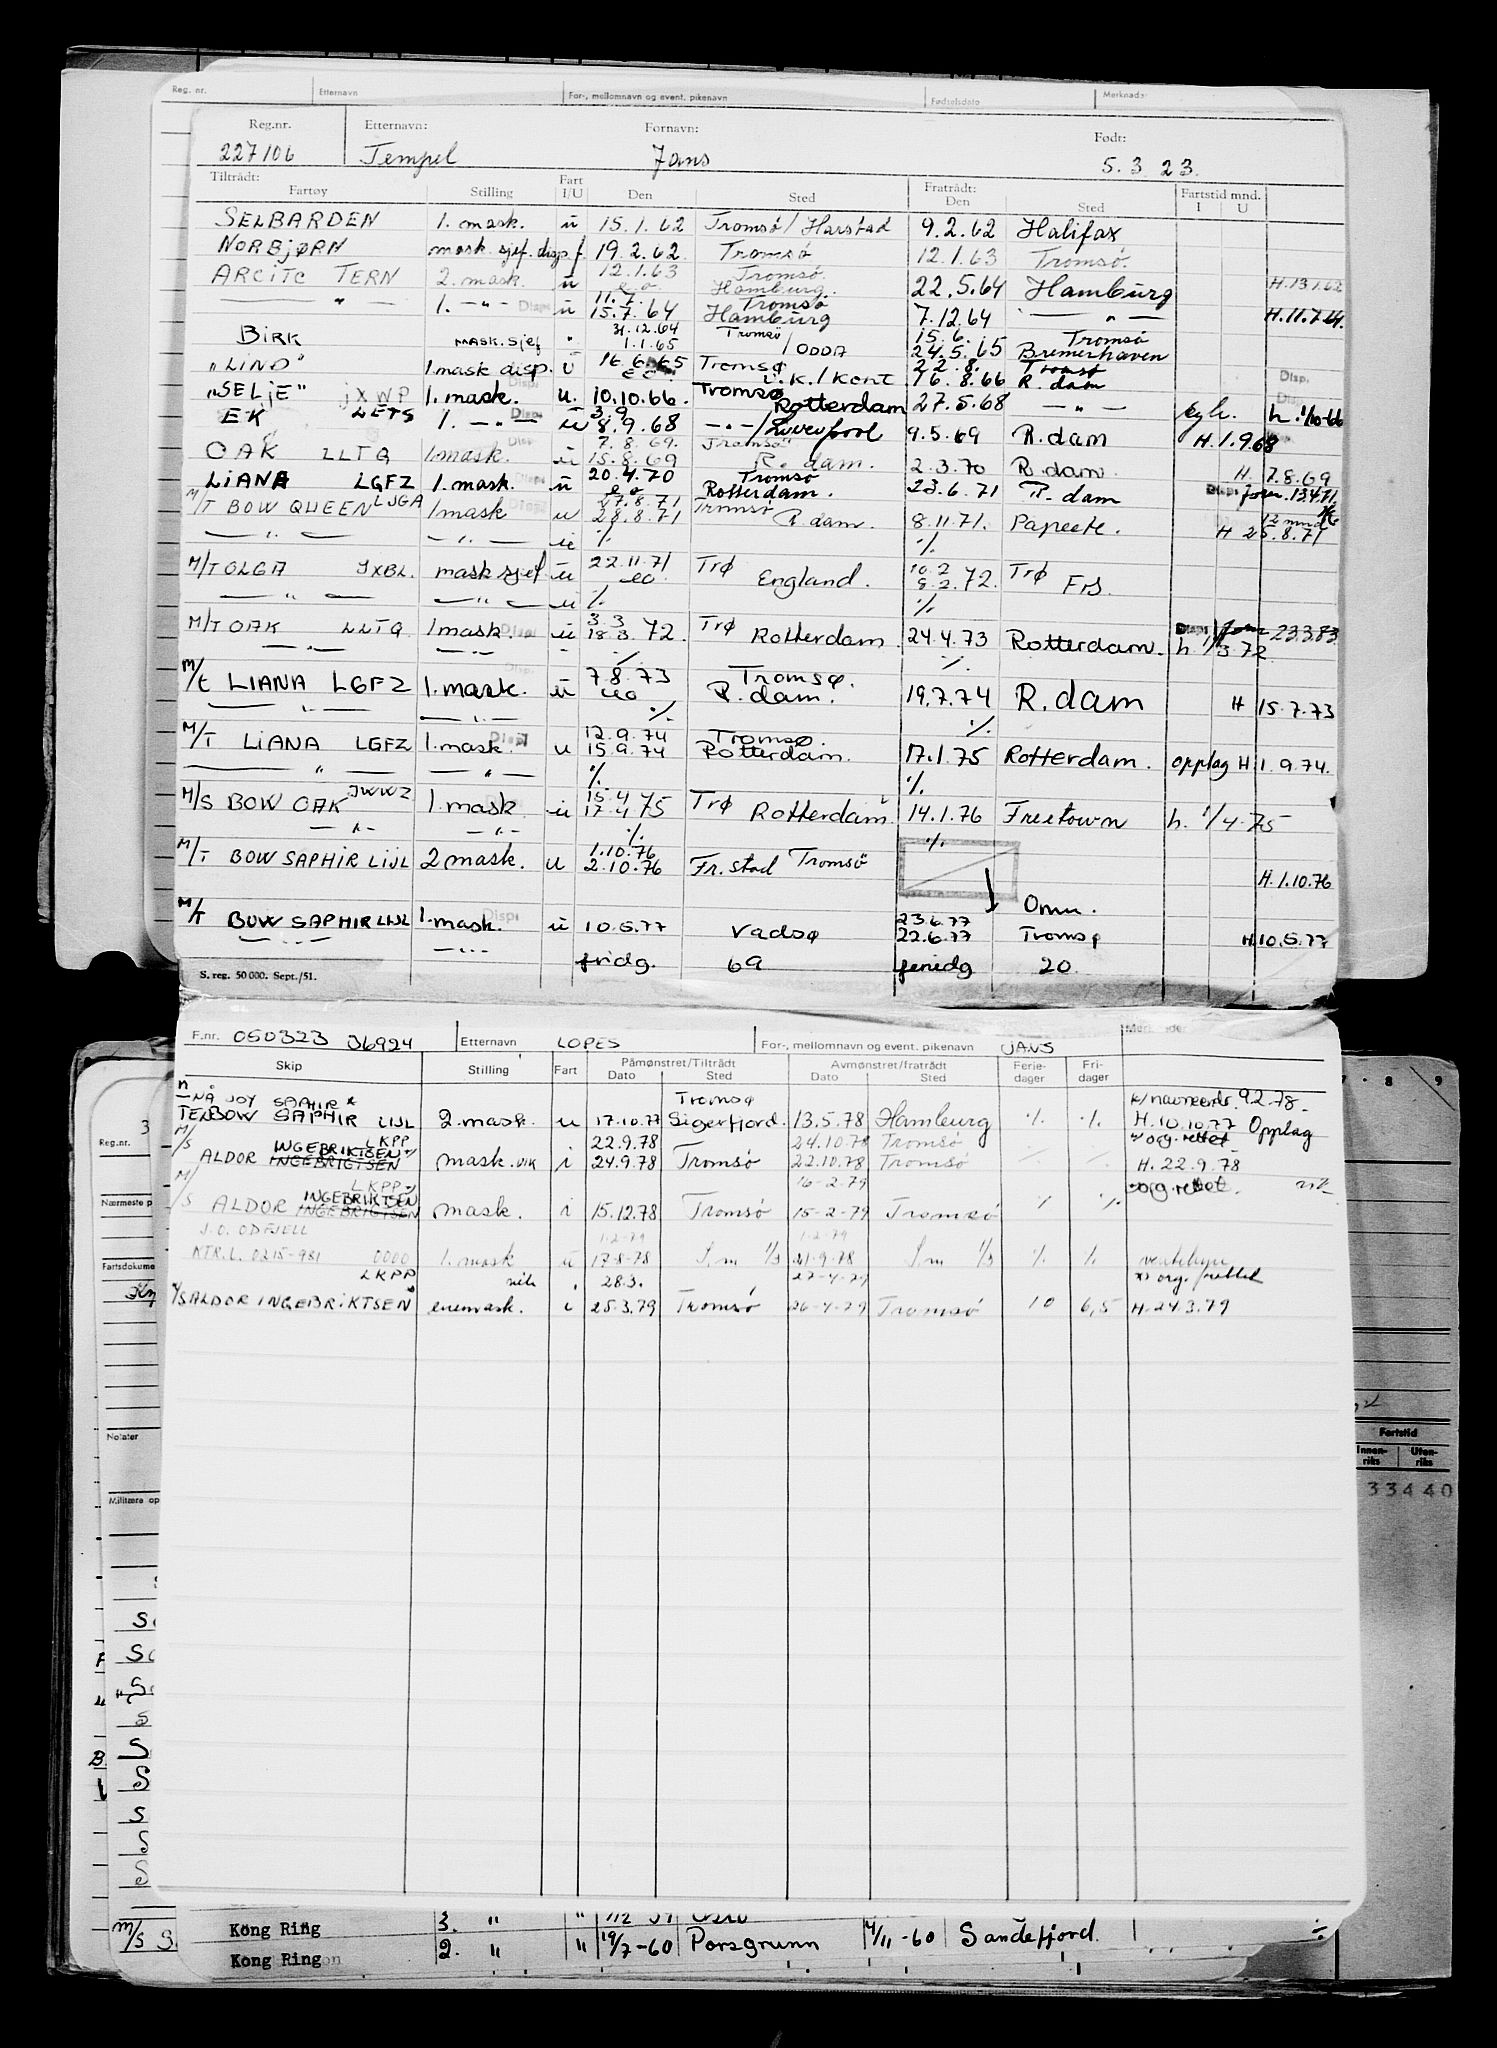 Reg. nr. Etternavn For-, mellomnavn og event. pikenavn Fødselsdato Merknader
Reg.nr. Etternavn: Fornavn: Født:
227106 Tempel Jans 5.3 23.
Tiltrådt: Fart Fratrådt: Fartstid mnd.
Fartøy Stilling I/U Den Sted Den Sted I U
SELBARDEN 1. mask. u 15.1.62 Tromsø/Harstad 9.2.62 Halifax
NORBJØRN mask. sjef. disp. f. 19.2.62 Tromsø 12.1.63 Tromsø.
12.1.63 Tromsø.
ARCITC TERN 2. mask. u Hamburg. 22.5.64 Hamburg H.13.1.62
11.7. Tromsø
— " — 1. - " - Disp u 15.7.64 Hamburg 7.12.64 — " — H.11.7.64.
31.12.64 Tromsø 15.6. Tromsø
BIRK mask.sjef " 1.1.65 /ODDA 24.5.65 Bremerhaven
"LIND" 1 mask disp. u 16.6.65 Tromsø 22.8. Tromsø
U.K./Kent 16.8.66 R. dam Disp.
"SELJE" JXWP 1. mask. u. 10.10.66. Tromsø Rotterdam 27.5.68 — " — h. 1/10-66
3.9
EK LETS 1. — " — Disp u 8.9.68 - " - /Liverpool 9.5.69 R.dam H.1.9.68
7.8.69. Tromsø
OAK LLTQ 1mask. u 15.8.69 R. dam. 2.3.70 R.dam. H. 7.8.69
20.4.70 Tromsø
LIANA LGFZ 1. mask. u Rotterdam. 23.6.71 R. dam Disp. 13.4.71
27.8.71 Tromsø
M/T BOW QUEEN LJGA 1mask Disp u 28.8.71 R.dam. 8.11.71. Papeete. H 25.8.71
— " — — " — u % %
M/T OLGA JXBL. mask sjef u 22.11.71 Trø England. 10.2 8.2.72. Trø Frs.
— " — — " — u % %
M/T OAK LLTQ 1mask. Disp u 3.3 18.3.72. Trø Rotterdam. 24.4.73 Rotterdam. h. 1/3 72 Disp. 23383
— " — — " — % %
7.8.73 Tromsø.
M/t LIANA LGFZ 1. mask. u R.dam. 19.7.74 R.dam H 15.7.73
— " — — " — % %
12.9.74 Tromsø.
M/T LIANA LGFZ 1. mask. Disp u 15.9.74 Rotterdam. 17.1.75 Rotterdam. opplag H 1.9.74.
— " — — " — % %
M/S BOW OAK JWWZ 1. mask u 15.4 17.4 75 Trø Rotterdam 14.1.76 Freetown h. 1/4-75
— " — — " — % %
1.10.76
M/T BOW SAPHIR LIJL 2 mask. u 2.10.76 Fr.stad Tromsø H.1.10.76
Omm.
23.6.77
M/t BOW SAPHIR LIJL 1.mask. Disp u 10.5.77 Vadsø 22.6.77 Tromsø H.10.5.77
— " — — " — fridg. 69 feriedg 20
S. reg. 50 000. Sept./51.
F.nr. 050323 36924 Etternavn LOPES For-, mellomnavn og event. pikenavn JANS Merknader
Skip Stilling Fart Påmønstret/Tiltrådt Avmønstret/fratrådt Ferie-dager Fri-dager
Dato Sted Dato Sted
NÅ JOY SAPHIR * Tromsø 9.2.78.
TEN BOW SAPHIR LIJL 2.mask. u 17.10.77 Sigerfjord. 13.5.78 Hamburg % % H.10.10.77 Opplag
M/S INGEBRIKTSEN LKPP 22.9.78 24.10.78 Tromsø org. rettet
ALDOR INGEBRIGTSEN mask.vik i 24.9.78 Tromsø 22.10.78 Tromsø H. 22.9.78
M/S LKPP 16-2-79 org. rettet.
ALDOR INGEBRIKTSEN INGEBRIGTSEN mask. i 15.12.78 Tromsø 15-2-79 Tromsø % %
J.O. ODFJELL 1-2-79 1-2-79
KTR.L. 0215-981 0000 1. mask u 17-8-78 S.m 1/3 21-9-78 S.m 1/3 % %
LKPP 28.3. 27-4-79 org. rettet
M/S ALDOR INGEBRIKTSEN enemask. i 25.3.79 Tromsø 26-4-79 Tromsø 10 6,5 H-24.3.79
Reg.nr.
Nærmeste p
Fartsdokume
Notater
Militære op
Fartstid
Innen-riks Uten-riks
33440
Kong Ring 3. " "
Kong Ring 2. " " 19/7-60 Porsgrunn 4/11-60 Sandefjord.